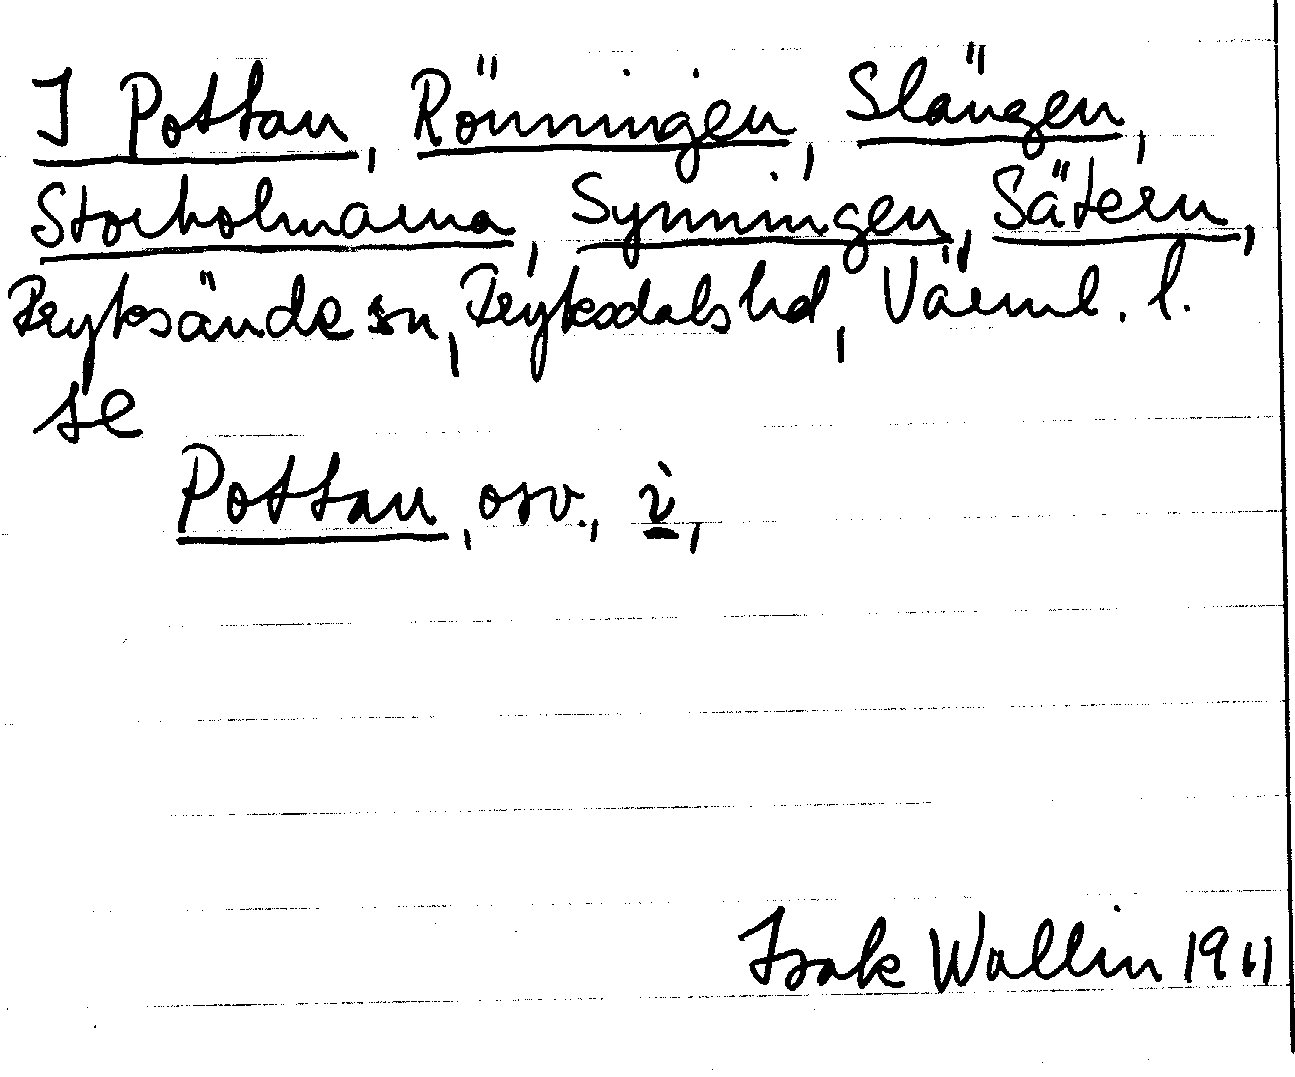 I Pottan, Rönningen, Slängen,
Storholmarna, Synningen, Sätern,
Fryksände sn, Fryksdals hd, Värml. l.
se
Pottan, osv., i,
Isak Wallin 1911